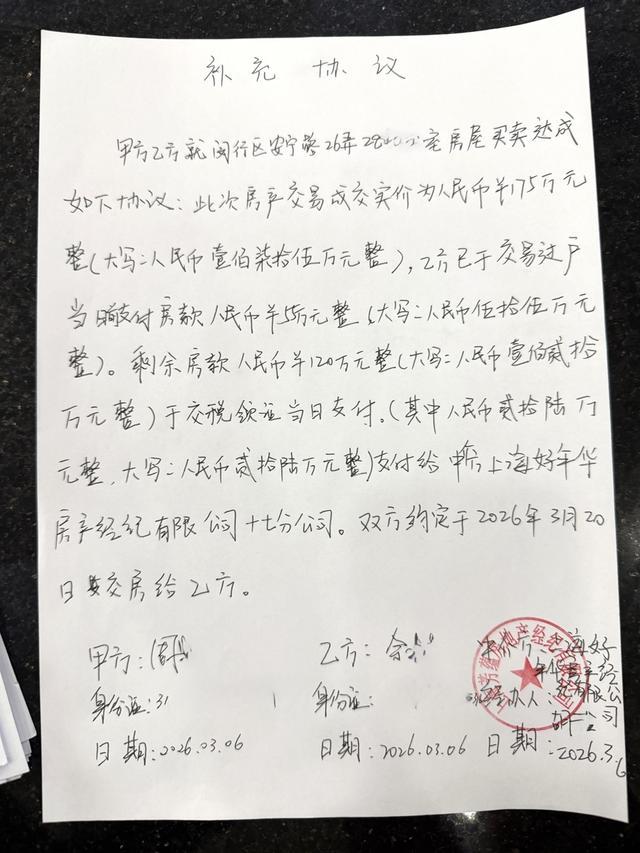 补充协议
甲方乙方就闵行区安宁路26弄28室房屋买卖达成
如下协议：此次房产交易成交实价为人民币￥175万元
整（大写：人民币壹佰柒拾伍万元整），乙方已于交易过户
当日前支付房款人民币￥55万元整（大写：人民币伍拾伍万元
整）。剩余房款人民币￥120万元整（大写：人民币壹佰贰拾
万元整）于交税领证当日支付。（其中人民币贰拾陆万
元整，大写：人民币贰拾陆万元整）支付给中介上海好年华
房产经纪有限公司十七分公司。双方约定于2026年3月20
日交房给乙方。
甲方：周 乙方：余 上海好
年华房产经
身份证：31 身份证： 经办人：纪有限公
司
日期：2026.03.06 日期：2026.03.06 日期：2026.3.6
房地产经纪有限